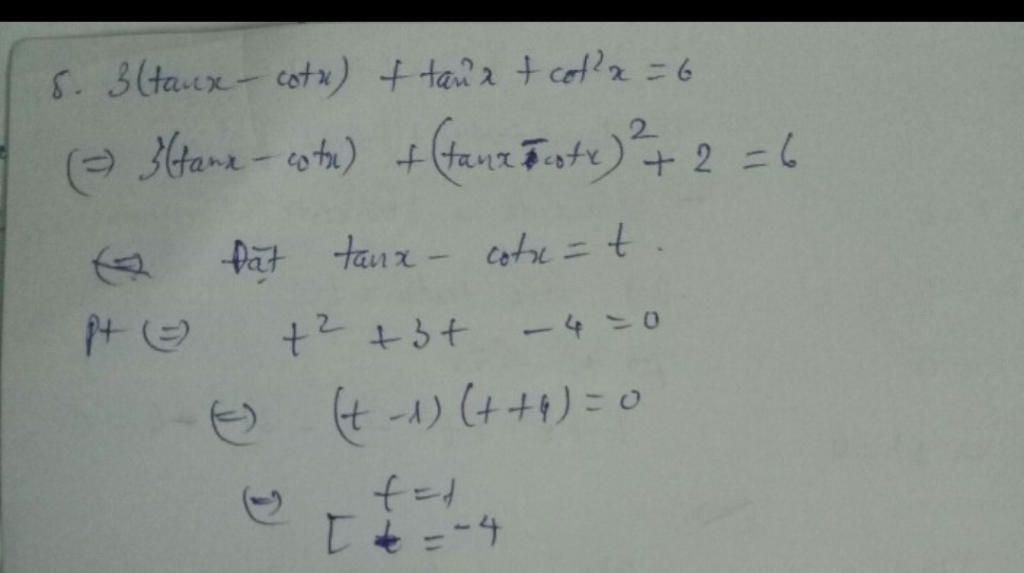 5. 3(tanx - cotx) + tan²x + cot²x = 6
(=) 3(tanx - cotx) + (tanx - cotx)² + 2 = 6
(=) Đặt tanx - cotx = t.
pt (=) t² + 3t - 4 = 0
(=) (t - 1) (t + 4) = 0
(=) t = 1
[ t = -4